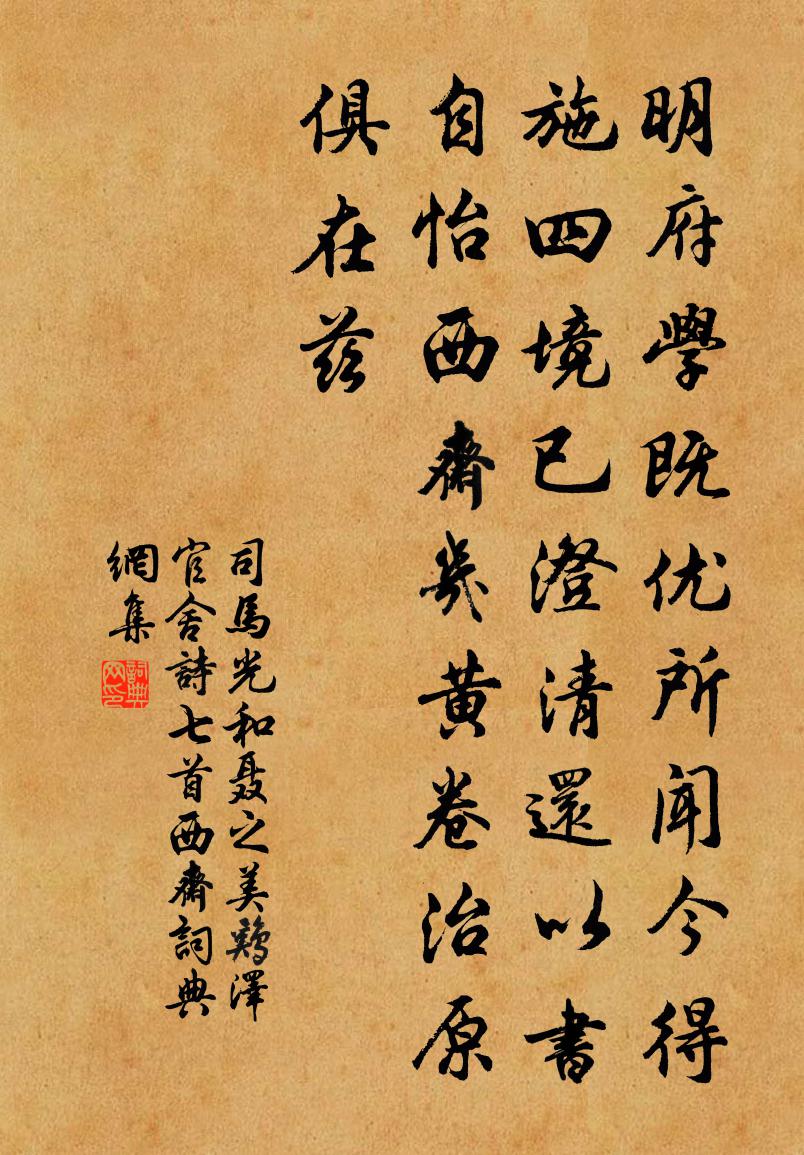 明府學既优所闻今得
施四境已澄清還以書
自怡西齋幾黄卷治原
俱在兹
司馬光和聂之美鷄澤
官舍詩七首西齋詞典
網集
詞典网印